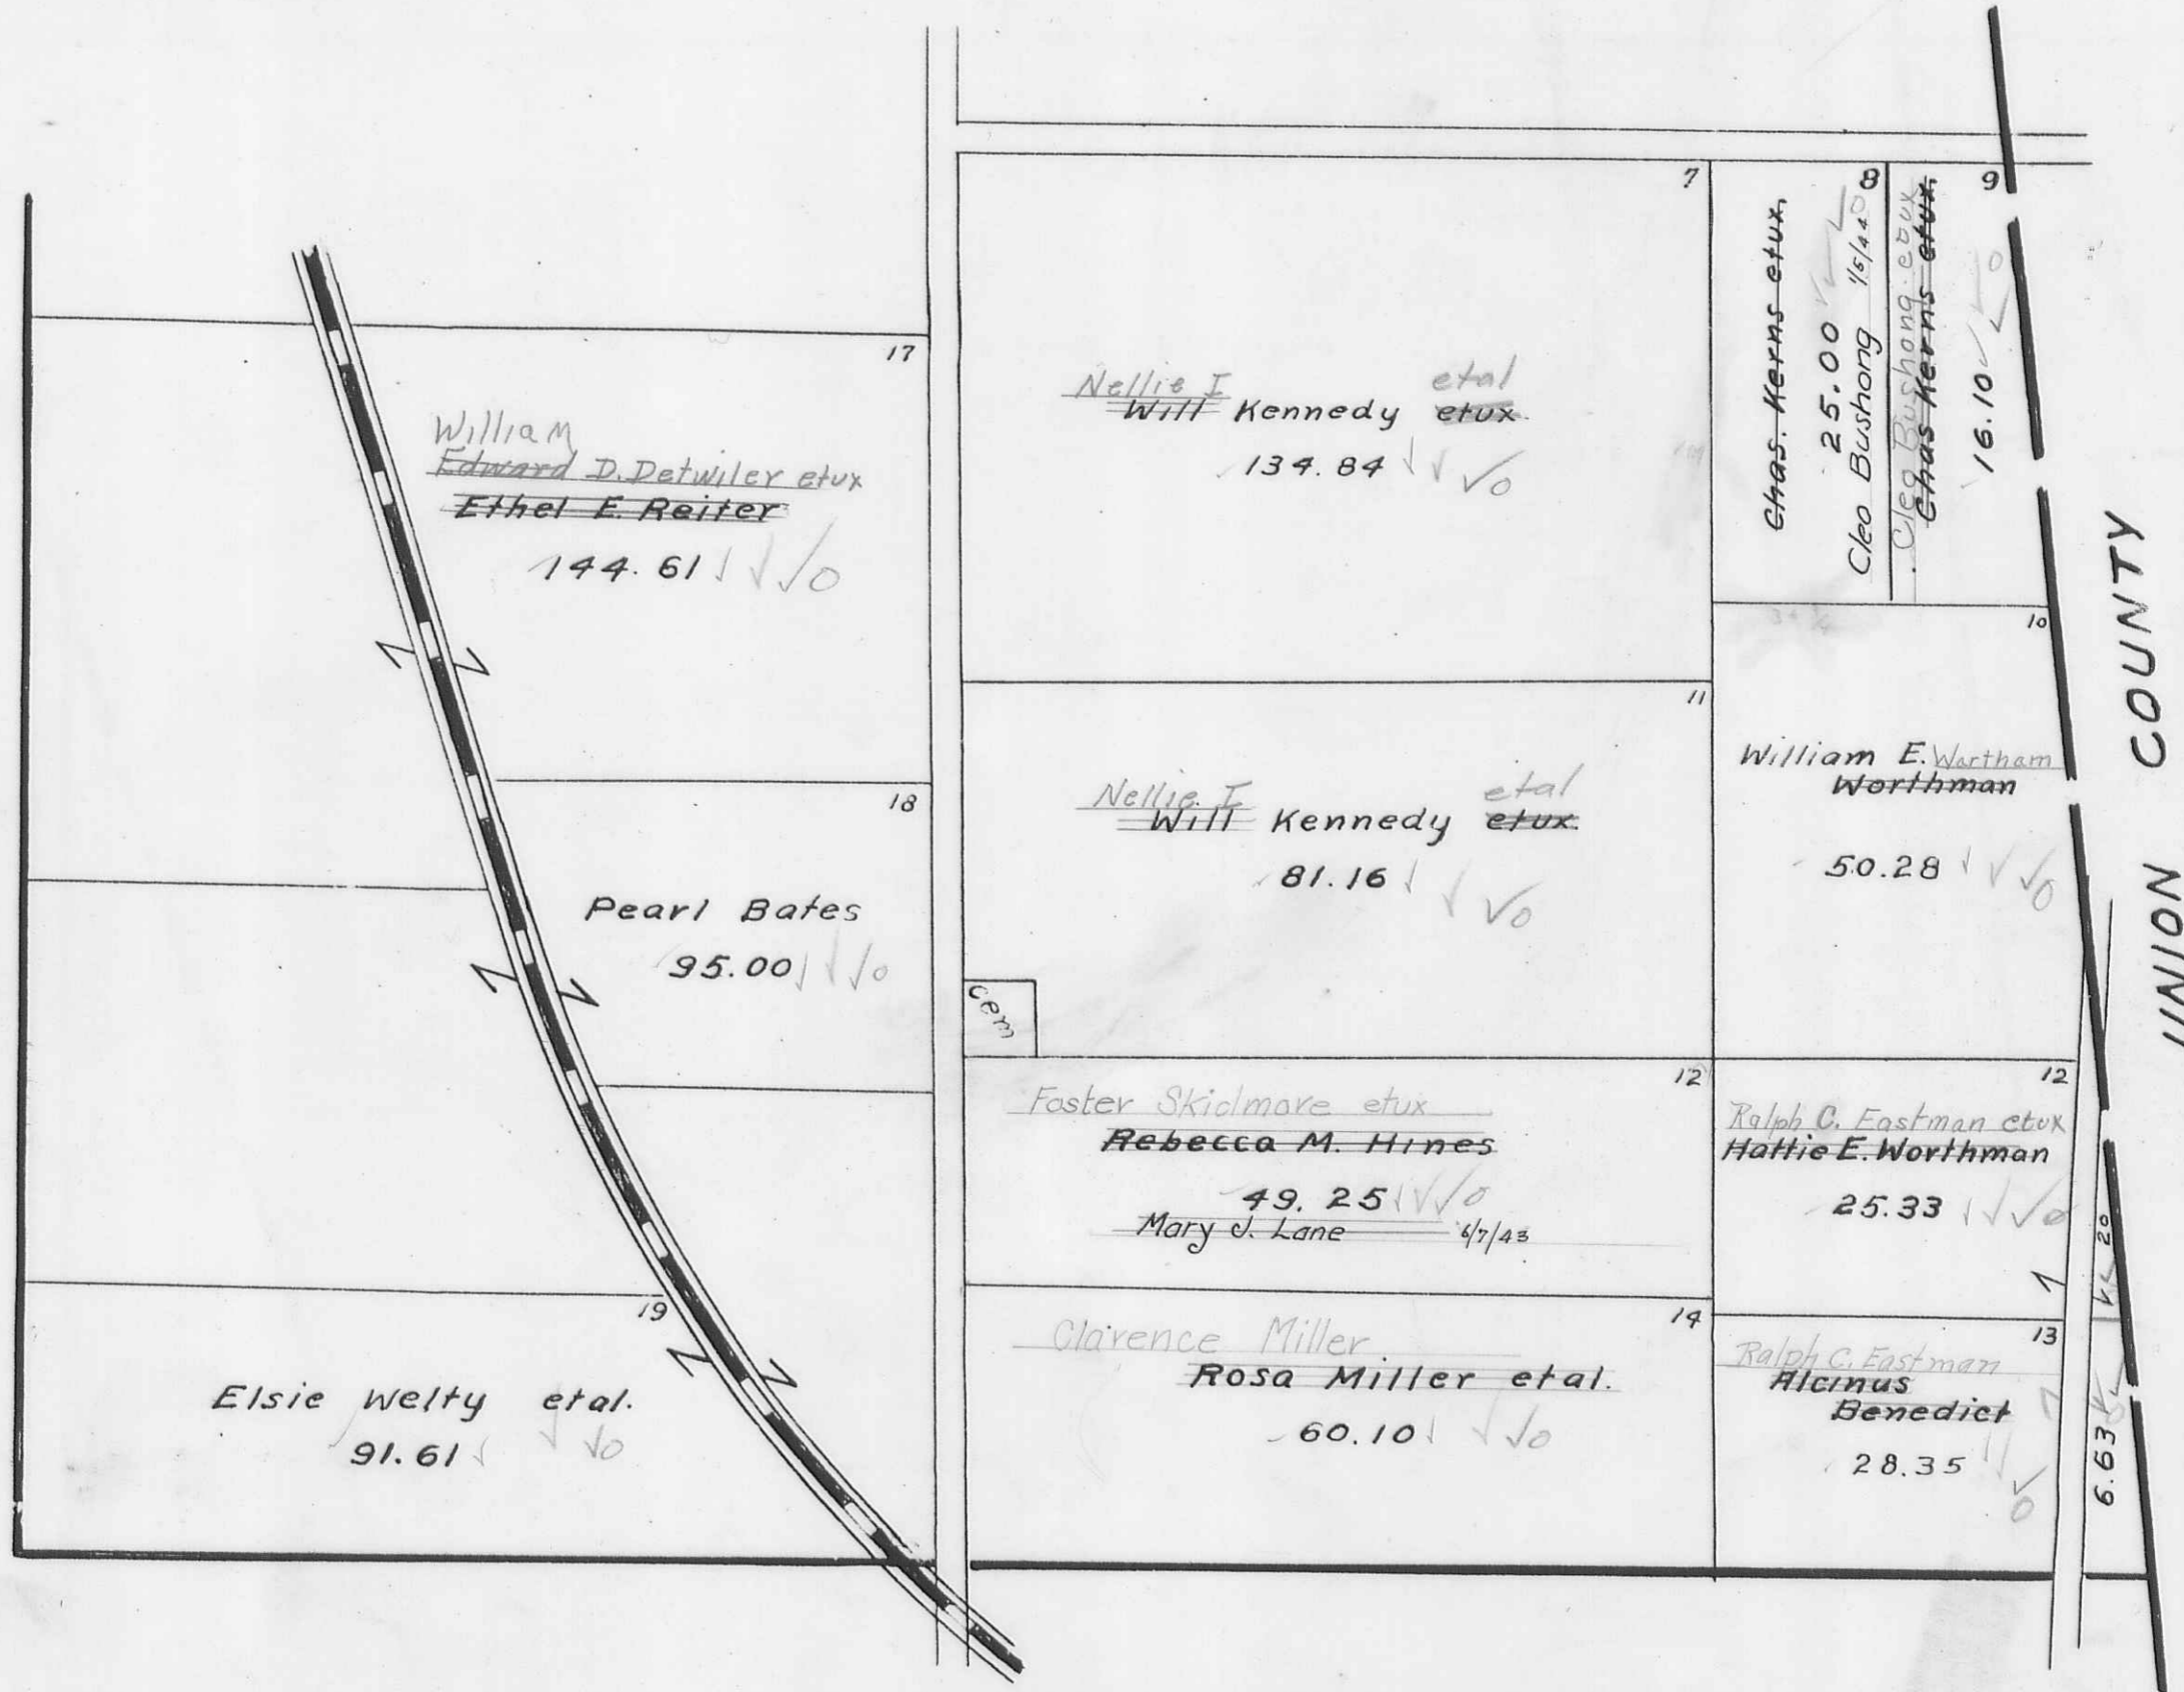 17
William
Edward D. Detwiler etux
Ethel E. Reiter
144.61
18
Pearl Bates
95.00
19
Elsie Welty etal.
91.61
7
Nellie I etal
Will Kennedy etux.
134.84
8
Chas. Kerns etux.
25.00
Cleo Bushong 1/5/44
9
Cleo Bushong etux
Chas Kerns etux.
16.10
10
William E. Wartham
Worthman
50.28
11
Nellie I etal
Will Kennedy etux.
81.16
cem
12
Foster Skidmore etux
Rebecca M. Hines
49.25
Mary J. Lane 6/7/43
12
Ralph C. Eastman etux
Hattie E. Worthman
25.33
14
Clarence Miller
Rosa Miller etal.
60.10
13
Ralph C. Eastman
Alcinus
Benedict
28.35
20
6.63
UNION COUNTY